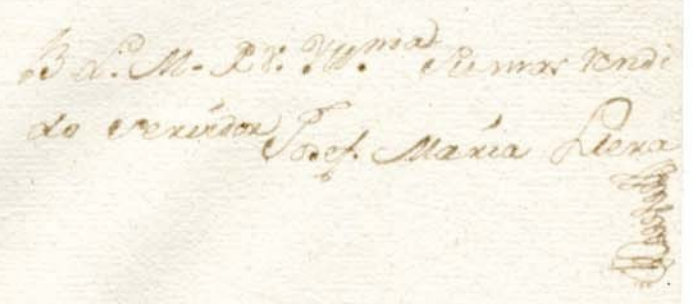 B. L. M. P. V. Yll.ma Su mas rendi
do servidor Josef Maria Llera